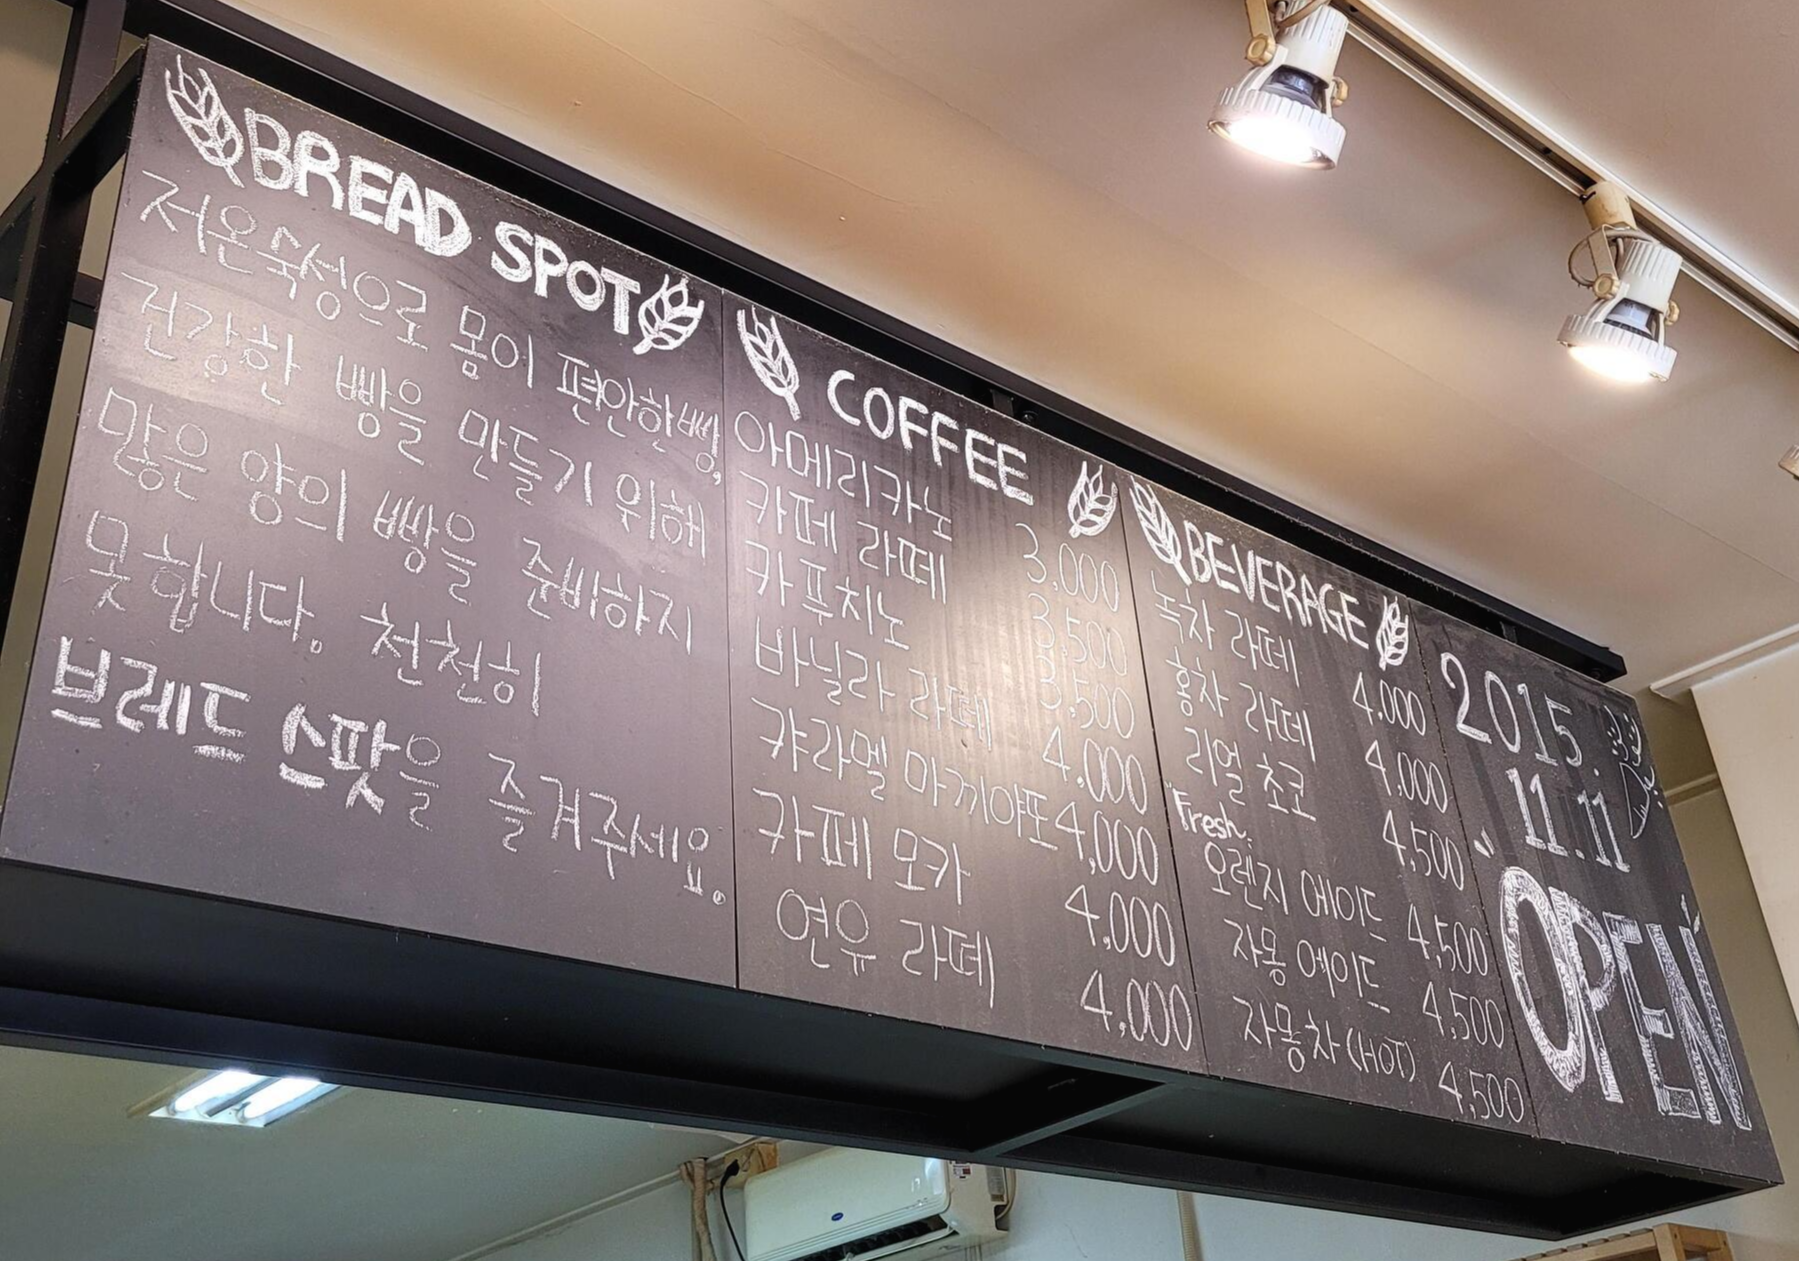 BREAD SPOT
저온숙성으로 몸이 편안한빵,
건강한 빵을 만들기 위해
많은 양의 빵을 준비하지
못합니다. 천천히
브레드 스팟을 즐겨주세요.
COFFEE
아메리카노 3,000
카페 라떼 3,500
카푸치노 3,500
바닐라 라떼 4,000
캬라멜 마끼야또 4,000
카페 모카 4,000
연유 라떼 4,000
BEVERAGE
녹차 라떼 4.000
홍차 라떼 4,000
리얼 초코 4,500
"Fresh"
오렌지 에이드 4,500
자몽 에이드 4,500
자몽차(HOT) 4,500
2015.
11.11
OPEN